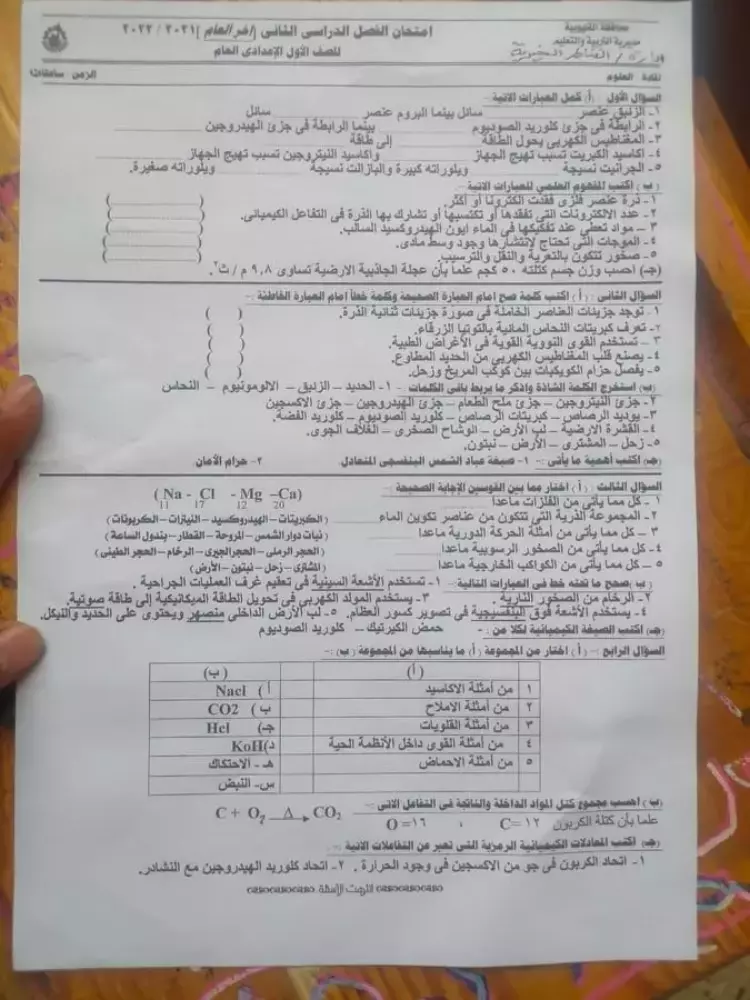 محافظة القليوبية
مديرية التربية والتعليم
إدارة / القناطر الخيرية
امتحان الفصل الدراسى الثانى (اخر العام) ٢٠٢١ / ٢٠٢٢
للصف الأول الإعدادى العام
مادة العلوم
الزمن ساعتان
السؤال الأول (أ) كمل العبارات الاتية
١- الزئبق عنصر ............ سائل بينما البروم عنصر ............ سائل
٢- الرابطة فى جزئ كلوريد الصوديوم ............ بينما الرابطة فى جزئ الهيدروجين ............
٣- المغناطيس الكهربى يحول الطاقة ............ إلى طاقة ............
٤- أكاسيد الكبريت تسبب تهيج الجهاز ............ وأكاسيد النيتروجين تسبب تهيج الجهاز ............
٥- الجرانيت نسيجة ............ وبلوراته كبيرة والبازلت نسيجة ............ وبلوراته صغيرة.
(ب) اكتب المفهوم العلمى للعبارات الاتية
١- ذرة عنصر فلزى فقدت الكترونا أو أكثر. (............)
٢- عدد الالكترونات التى تفقدها أو تكتسبها أو تشارك بها الذرة فى التفاعل الكيميائى. (............)
٣ – مواد تعطى عند تفكيكها فى الماء أيون الهيدروكسيد السالب. (............)
٤- الموجات التى تحتاج لإنتشارها وجود وسط مادى. (............)
٥- صخور تتكون بالتعرية والنقل والترسيب. (............)
(جـ) احسب وزن جسم كتلته ٥٠ كجم علما بأن عجلة الجاذبية الارضية تساوى ٩,٨ م / ث٢.
السؤال الثانى : ( أ ) اكتب كلمة صح امام العبارة الصحيحة وكلمة خطأ امام العبارة الخاطئة :-
١ - توجد جزيئات العناصر الخاملة فى صورة جزيئات ثنائية الذرة. (   )
٢- تعرف كبريتات النحاس المائية بالتوتيا الزرقاء. (   )
٣ – تستخدم القوى النووية القوية فى الأغراض الطبية. (   )
٤- يصنع قلب المغناطيس الكهربى من الحديد المطاوع. (   )
٥- يفصل حزام الكويكبات بين كوكب المريخ وزحل. (   )
(ب) استخرج الكلمة الشاذة واذكر ما يربط باقى الكلمات ١- الحديد – الزئبق – الالومونيوم – النحاس
٢- جزئ النيتروجين – جزئ ملح الطعام – جزئ الهيدروجين – جزئ الاكسجين
٣- يوديد الرصاص – كبريتات الرصاص – كلوريد الصوديوم – كلوريد الفضة.
٤- القشرة الارضية – لب الأرض – الوشاح الصخرى – الغلاف الجوى.
٥- زحل – المشترى – الأرض – نبتون.
(جـ) اكتب أهمية ما يأتى :- ١- صبغة عباد الشمس البنفسجى المتعادل ٢- حزام الأمان
السؤال الثالث : ( أ ) اختار مما بين القوسين الإجابة الصحيحة :-
١ - كل مما يأتى من الفلزات ماعدا ............ ( 11Na - 17Cl - 12Mg – 20Ca)
٢- المجموعة الذرية التى تتكون من عناصر تكوين الماء ............ (الكبريتات – الهيدروكسيد – النيترات – الكربونات)
٣ – كل مما يأتى من أمثلة الحركة الدورية ماعدا ............ (نبات دوار الشمس – المروحة – القطار – بندول الساعة)
٤- كل مما يأتى من الصخور الرسوبية ماعدا ............ (الحجر الرملى – الحجر الجيرى – الرخام – الحجر الطينى)
٥ – كل مما يأتى من الكواكب الخارجية ماعدا ............ (المشترى – زحل – نبتون – الأرض)
( ب ) صحح ما تحته خط فى العبارات التالية :- ١- تستخدم الأشعة السينية فى تعقيم غرف العمليات الجراحية .
٢- الرخام من الصخور النارية . ٣- يستخدم المولد الكهربى فى تحويل الطاقة الميكانيكية إلى طاقة صوتية.
٤- يستخدم الأشعة فوق البنفسجية فى تصوير كسور العظام. ٥- لب الأرض الداخلى منصهر ويحتوى على الحديد والنيكل.
(جـ) اكتب الصيغة الكيميائية لكلا من :- حمض الكبرتيك – كلوريد الصوديوم
السؤال الرابع :- ( أ ) اختار من المجموعة (أ) ما يناسبها من المجموعة (ب) :-
(أ) (ب)
١ من أمثلة الاكاسيد أ ) Nacl
٢ من أمثلة الاملاح ب ) CO2
٣ من أمثلة القلويات جـ) Hcl
٤ من أمثلة القوى داخل الأنظمة الحية د) KoH
٥ من أمثلة الأحماض هـ - الاحتكاك
س- النبض
(ب ) احسب مجموع كتل المواد الداخلة والناتجة فى التفاعل الاتى :-
C + O2 Δ→ CO2
علما بأن كتلة الكربون C= ١٢ ، O =١٦
(جـ) اكتب المعادلات الكيميائية الرمزية التى تعبر عن التفاعلات الاتية :-
١- اتحاد الكربون فى جو من الاكسجين فى وجود الحرارة . ٢- اتحاد كلوريد الهيدروجين مع النشادر.
انتهت الأسئلة